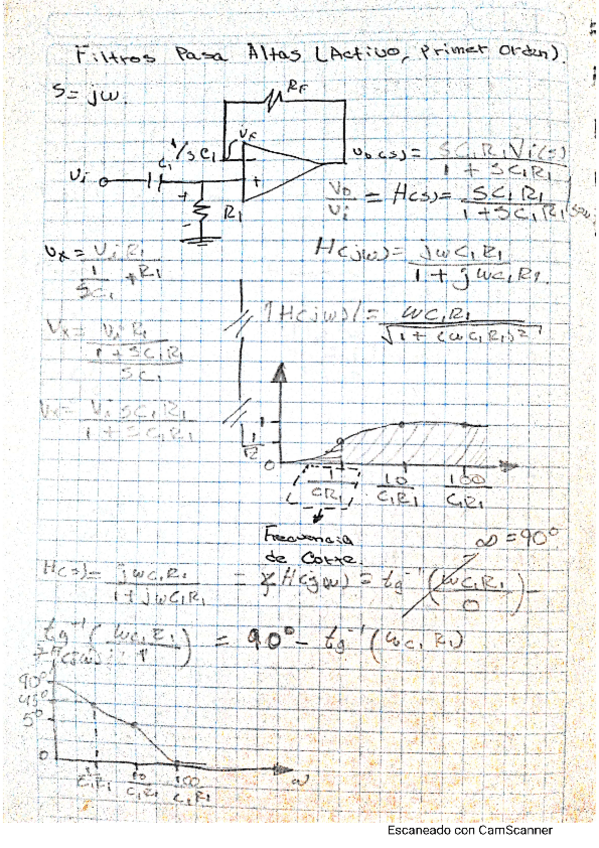 Filtros Pasa Altas (Activo, primer orden).
S = jω.
RF
Vx
1/SC1
C1
Vi
+
-
+
-
R1
Vo(s) = SC1R1Vi(s) / 1 + SC1R1
Vo/Vi = H(s) = SC1R1 / 1+SC1R1
H(jω) = jωC1R1 / 1 + jωC1R1.
Vx = Vi R1 / 1/SC1 + R1
|H(jω)| = ωC1R1 / √1+(ωC1R1)²
Vx = Vi R1 / 1+SC1R1 / SC1
Vx = Vi SC1R1 / 1+SC1R1
1
1/√2
0
1/CR1 10/C1R1 100/C1R1
Frecuencia
de Corte.
∞ = 90°
H(s) = jωC1R1 / 1+jωC1R1 = ∡H(jω) = tg⁻¹(ωC1R1 / 0) -
tg⁻¹(ωC1R1 / 1) = 90° - tg⁻¹(ωC1R1)
∡H(jω)
90°
45°
5°
0
1/C1R1 10/C1R1 100/C1R1 ω
Escaneado con CamScanner